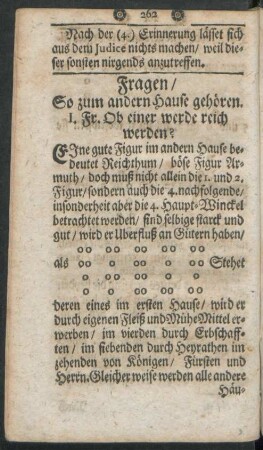 262
Nach der (4.) Erinnerung lässet sich
aus dem Judice nichts machen/ weil die-
ser sonsten nirgends anzutreffen.
Fragen/
So zum andern Hause gehören.
1. Fr. Ob einer werde reich
werden?
EJne gute Figur im andern Hause be-
deutet Reichthum/ böse Figur Ar-
muth/ doch muß nicht allein die 1. und 2.
Figur/ sondern auch die 4. nachfolgende/
insonderheit aber die 4. Haupt-Winckel
betrachtet werden/ sind selbige starck und
gut/ wird er Uberfluß an Gütern haben/
als Stehet
deren eines im ersten Hause/ wird er
durch eigenen Fleiß und Mühe Mittel er-
werben/ im vierden durch Erbschaff-
ten/ im siebenden durch Heyrathen im
zehenden von Königen/ Fürsten und
Herrn. Gleicher weise werden alle andere
Häu-